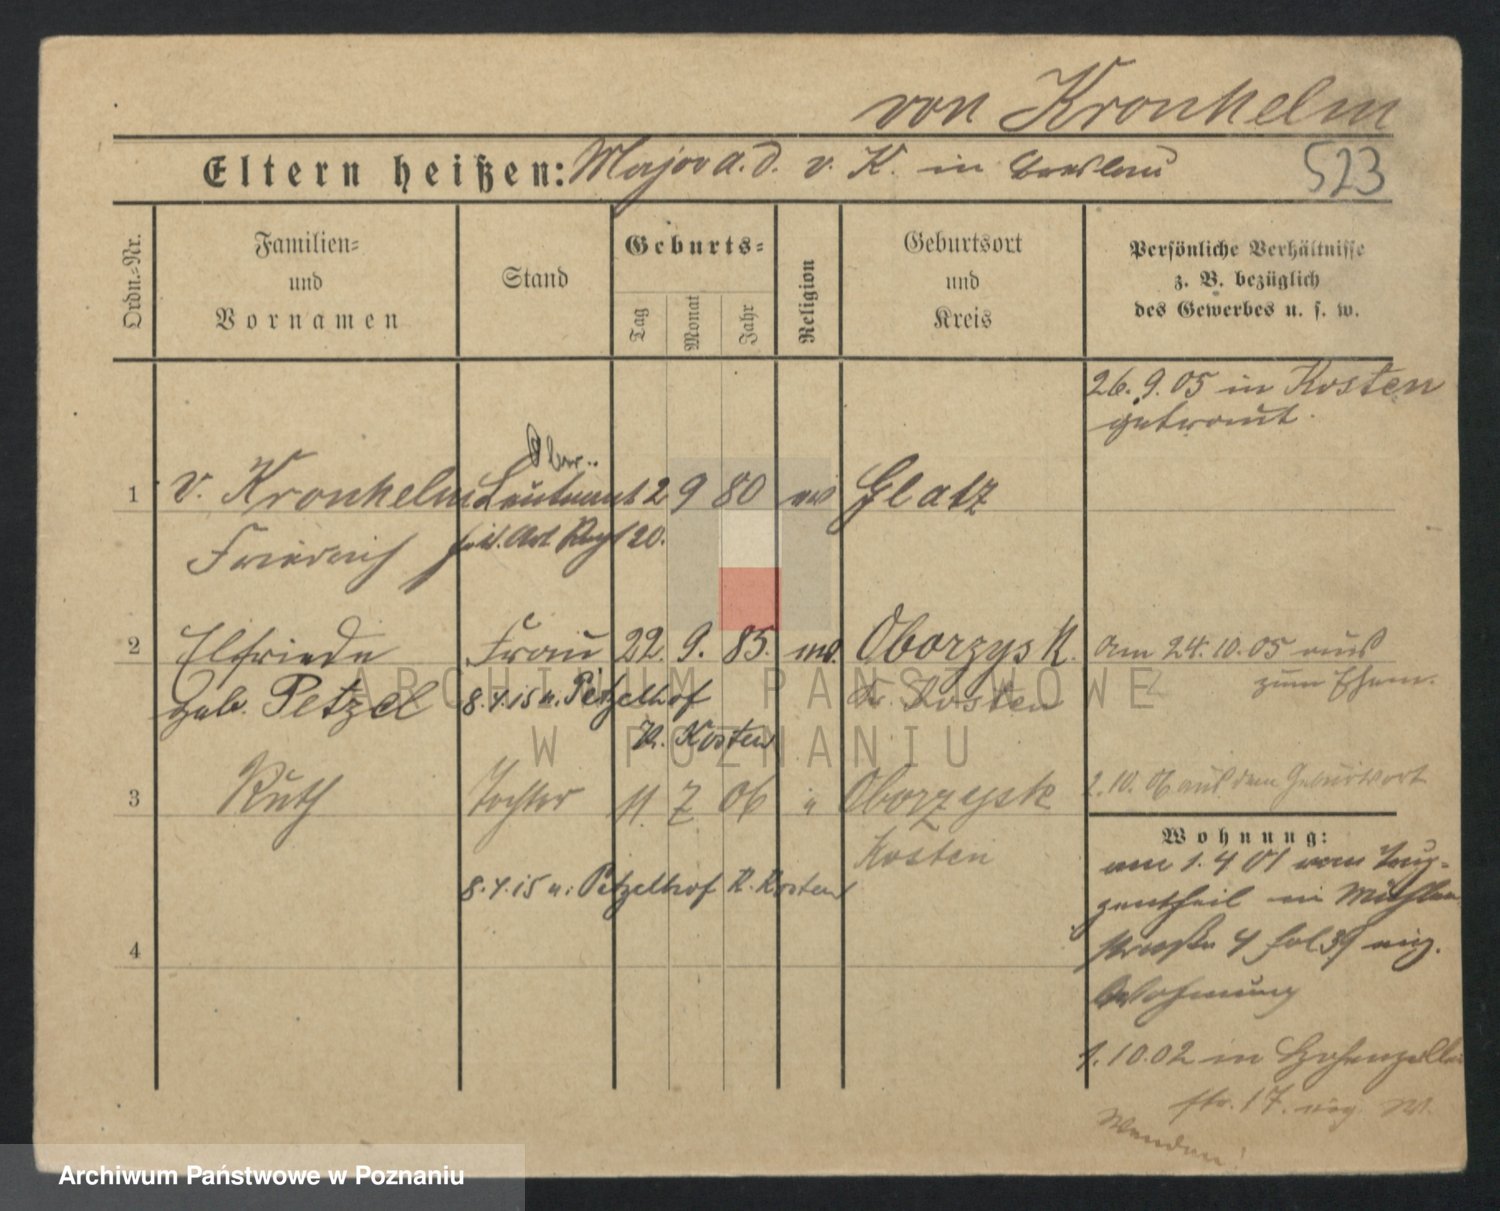 von Kronhelm
Eltern heißen: Major a. D. v. K. in Breslau 523
Ordn.-Nr.
Familien-
und
Vornamen
Stand
Geburts-
Tag
Monat
Jahr
Religion
Geburtsort
und
Kreis
Persönliche Verhältnisse
z. B. bezüglich
des Gewerbes u. s. w.
26. 9. 05 in Kosten
getraut.
Ober..
1 v. Kronhelm Leutnant 2 9 80 ev Glatz
Friedrich Art Regt 20.
2 Elfriede Frau 22. 9. 85. Oborzysk. am 24. 10. 05 aus
geb. Petzel 8.4.15 n. Petzelhof Kr. Kosten zum Ehem.
K. Kosten
3 Ruth Tochter 11. 7 06 " Oborzysk 2. 10. 06 aus dem Geburtsort
Kosten
8.4.15 n. Petzelhof K. Kosten
4
Wohnung:
am 1. 4 01 vom
in Mühlen
straße 4
Wohnung
1. 10. 02 in Hohenzollern
str. 17.
Wenden!
ARCHIWUM PAŃSTWOWE
W POZNANIU
Archiwum Państwowe w Poznaniu